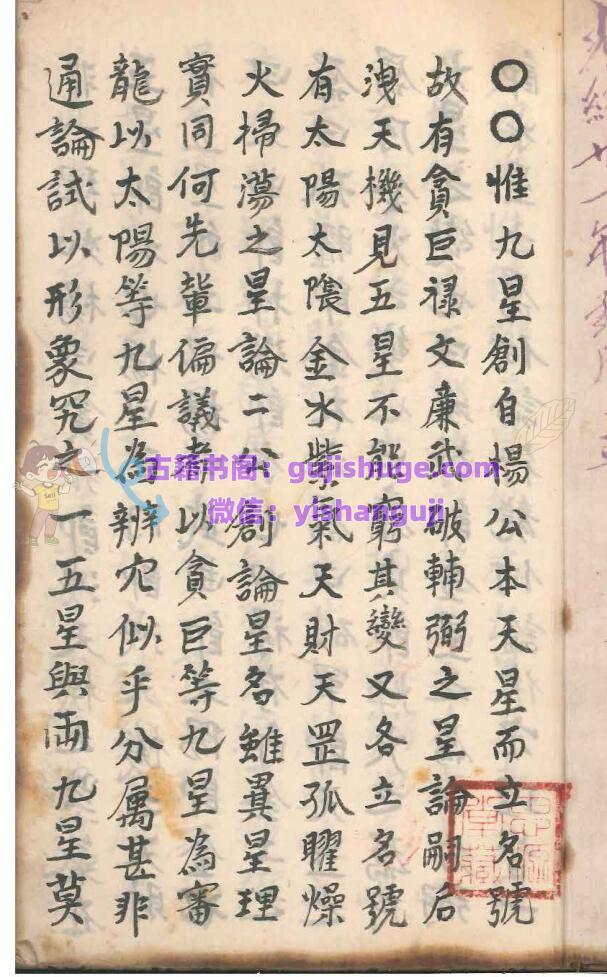 〇〇惟九星創自楊公本天星而立名號
故有貪巨禄文廉武破輔弼之星論嗣后
洩天機見五星不能窮其變又各立名號
有太陽太陰金水紫氣天財天罡孤曜燥
火掃蕩之星論二公創論星名雖異星理
實同何先輩偏議者以貪巨等九星為審
龍以太陽等九星為辨穴似乎分属甚非
通論試以形象究之一五星與兩九星莫
古籍书阁：gujishuge.com
微信：yishanguji
Sell